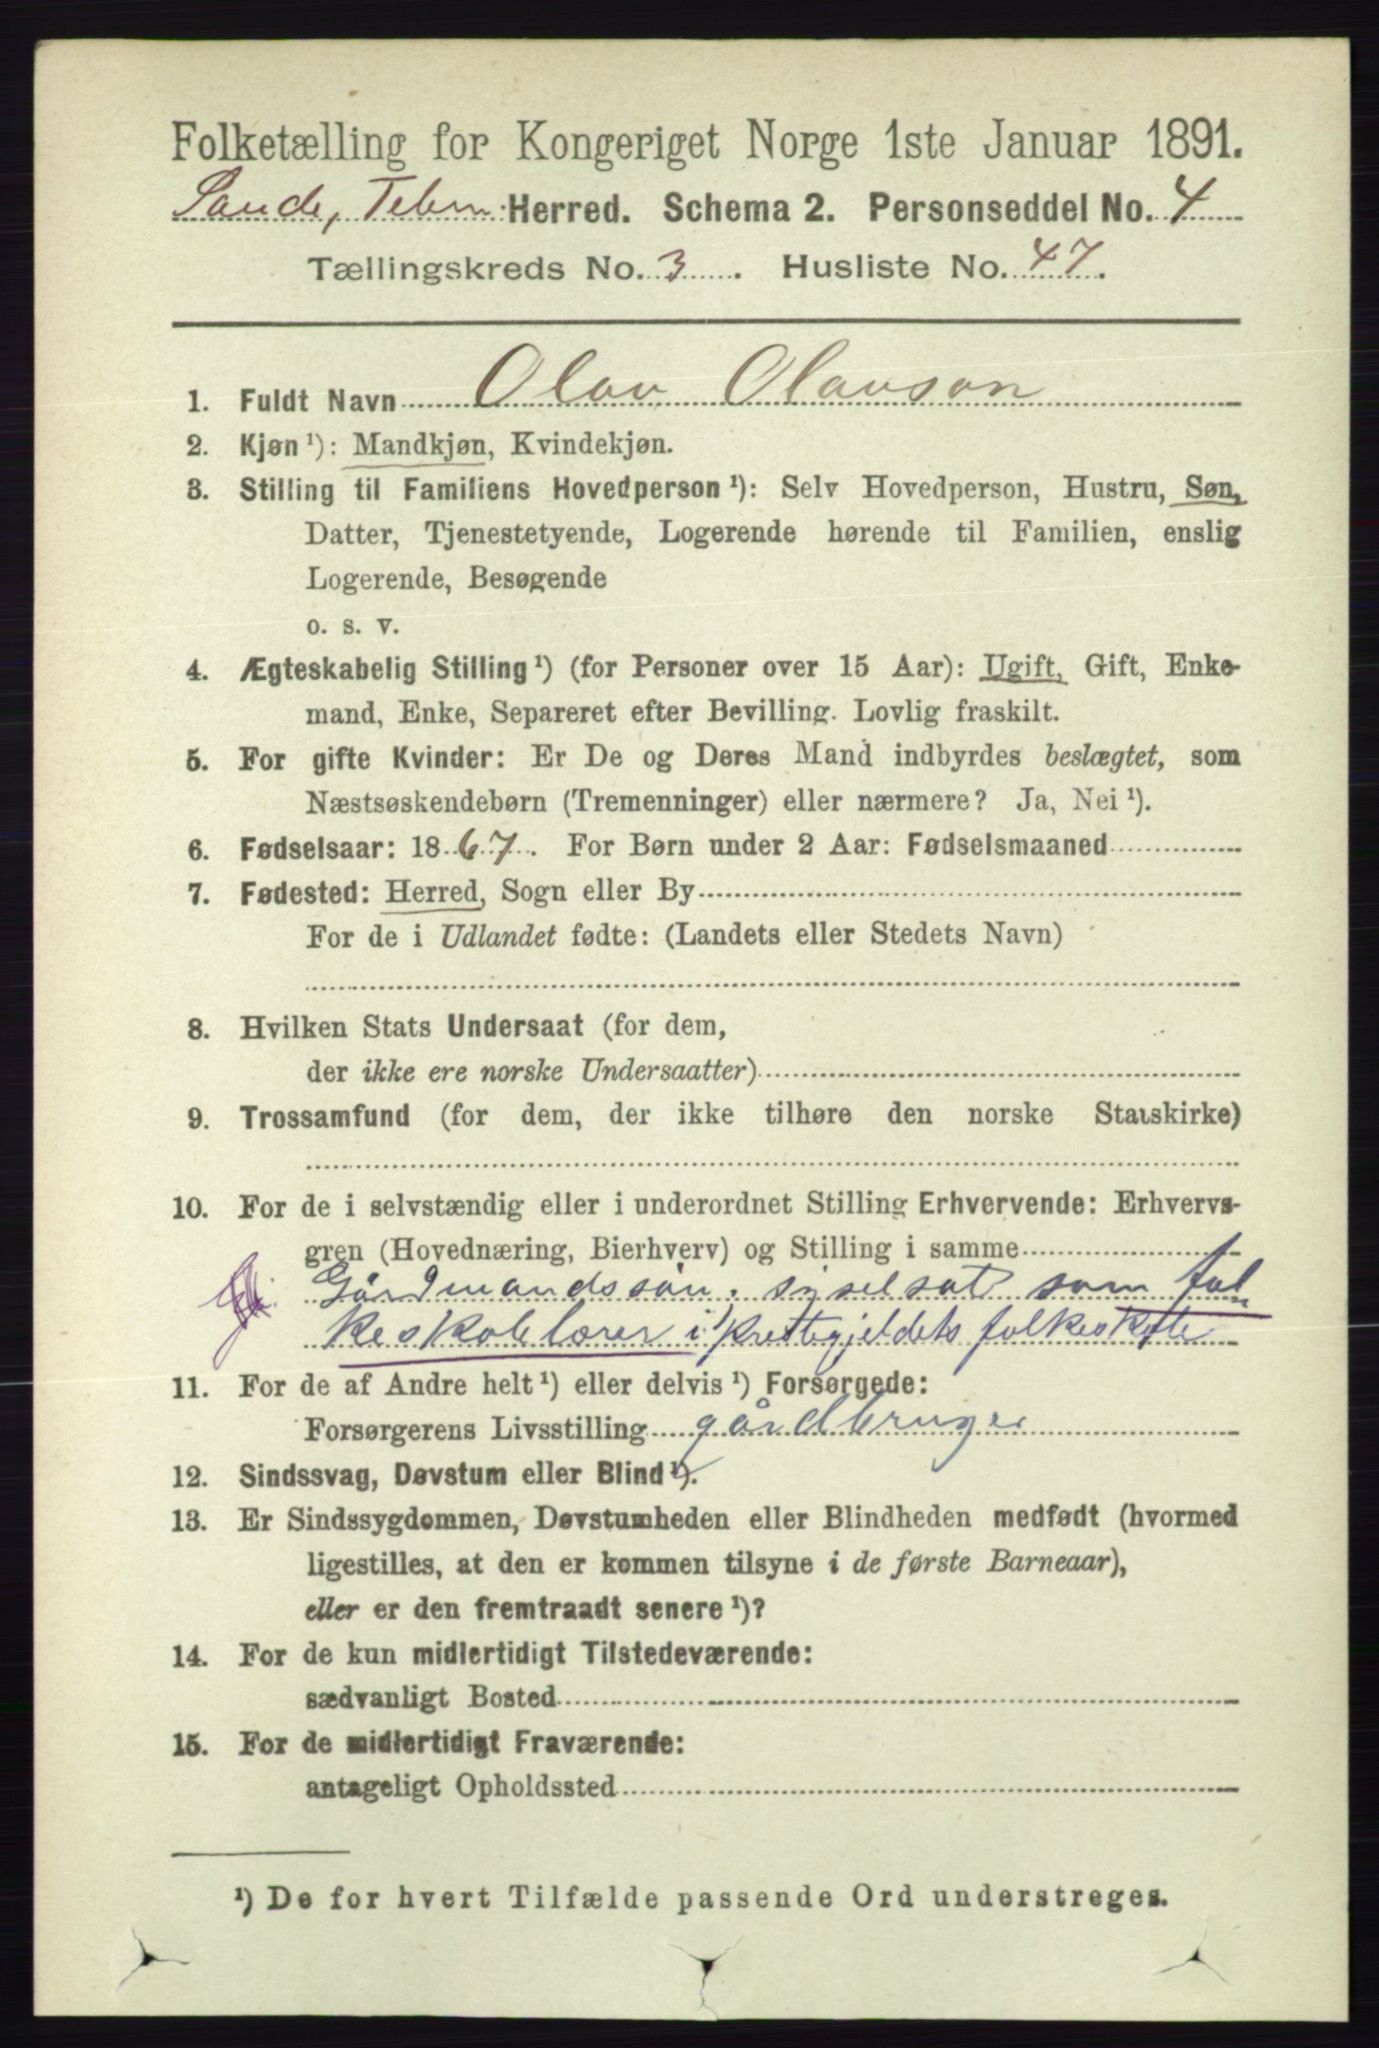 Folketælling for Kongeriget Norge 1ste Januar 1891.
Saude, Telem. Herred. Schema 2. Personseddel No. 4
Tællingskreds No. 3. Husliste No. 47.
1. Fuldt Navn Olav Olavson
2. Kjøn¹): Mandkjøn, Kvindekjøn.
3. Stilling til Familiens Hovedperson¹): Selv Hovedperson, Hustru, Søn,
Datter, Tjenestetyende, Logerende hørende til Familien, enslig
Logerende, Besøgende
o. s. v.
4. Ægteskabelig Stilling¹) (for Personer over 15 Aar): Ugift, Gift, Enke-
mand, Enke, Separeret efter Bevilling. Lovlig fraskilt.
5. For gifte Kvinder: Er De og Deres Mand indbyrdes beslægtet, som
Næstsøskendebørn (Tremenninger) eller nærmere? Ja, Nei¹).
6. Fødselsaar: 1867. For Børn under 2 Aar: Fødselsmaaned
7. Fødested: Herred, Sogn eller By
For de i Udlandet fødte: (Landets eller Stedets Navn)
8. Hvilken Stats Undersaat (for dem,
der ikke ere norske Undersaatter)
9. Trossamfund (for dem, der ikke tilhøre den norske Statskirke)
10. For de i selvstændig eller i underordnet Stilling Erhvervende: Erhvervs-
gren (Hovednæring, Bierhverv) og Stilling i samme
Gårdmandssøn, syselsat som fol
keskolelærer i Prestegjeldets folkeskole
11. For de af Andre helt¹) eller delvis¹) Forsørgede:
Forsørgerens Livsstilling gårdbruger
12. Sindssvag, Døvstum eller Blind¹).
13. Er Sindssygdommen, Døvstumheden eller Blindheden medfødt (hvormed
ligestilles, at den er kommen tilsyne i de første Barneaar),
eller er den fremtraadt senere¹)?
14. For de kun midlertidigt Tilstedeværende:
sædvanligt Bosted
15. For de midlertidigt Fraværende:
antageligt Opholdssted
¹) De for hvert Tilfælde passende Ord understreges.